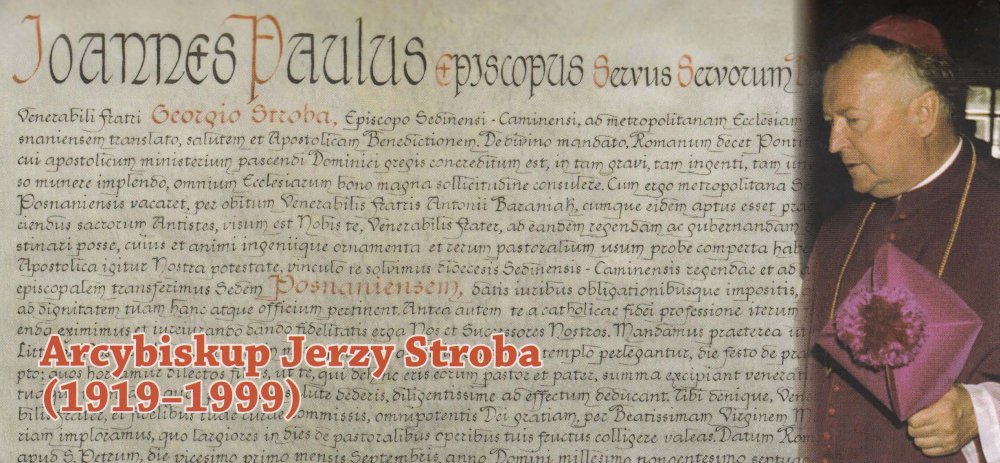 Joannes Paulus Episcopus Servus Servorum D
Venerabili Fratri Georgio Stroba, Episcopo Sedinensi - Caminensi, ad metropolitanam Ecclesiam
snaniensem translato, salutem et Apostolicam Benedictionem. De divino mandato, Romanum decet Ponti
cui apostolicum ministerium pascendi Dominici gregis concreditum est, in tam gravi, tam ingenti, tam un
so munere implendo, omnium Ecclesiarum bono magna sollicitudine consulere. Cum ergo metropolitana Se
Posnaniensis vacaret, per obitum Venerabilis Fratris Antonii Baraniak, cumque eidem aptus esset prae
ciendus sacrorum Antistes, visum est Nobis te, Venerabilis Frater, ad eandem regendam ac gubernandam
stinari posse, cuius et animi ingeniique ornamenta et rerum pastoralium usum probe comperta hab
Apostolica igitur Nostra potestate, vinculo te solvimus dioecesis Sedinensis - Caminensis regendae et ad a
episcopalem transferimus Sedem Posnaniensem, datis iuribus obligationibusque impositis,
ad dignitatem tuam hanc atque officium pertinent. Antea autem te a catholicae fidei professione iterum
enda eximimus et iureiurando dando fidelitatis erga Nos et Successores Nostros. Mandamus praeterea ut
Litt templo perlegantur, die festo de pra
Arcybiskup Jerzy Stroba
pto; quos hortamur dilectos filios, ut te, qui dehinc eris eorum pastor et pater, summa excipiant venerati
(1919–1999)
tuo iusseris, aut salute dederis, diligentissime ad effectum deducant. Tibi denique, Vene
bilis Frater, et fidelibus tuae curae commissis, omnipotentis Dei gratiam, per Beatissimam Virginem M
riam imploramus, quo largiores in dies de pastoralibus operibus tuis fructus colligere valeas. Datum Rom
apud S. Petrum, die vicesimo primo mensis Septembris, anno Domini millesimo nongentesimo septu